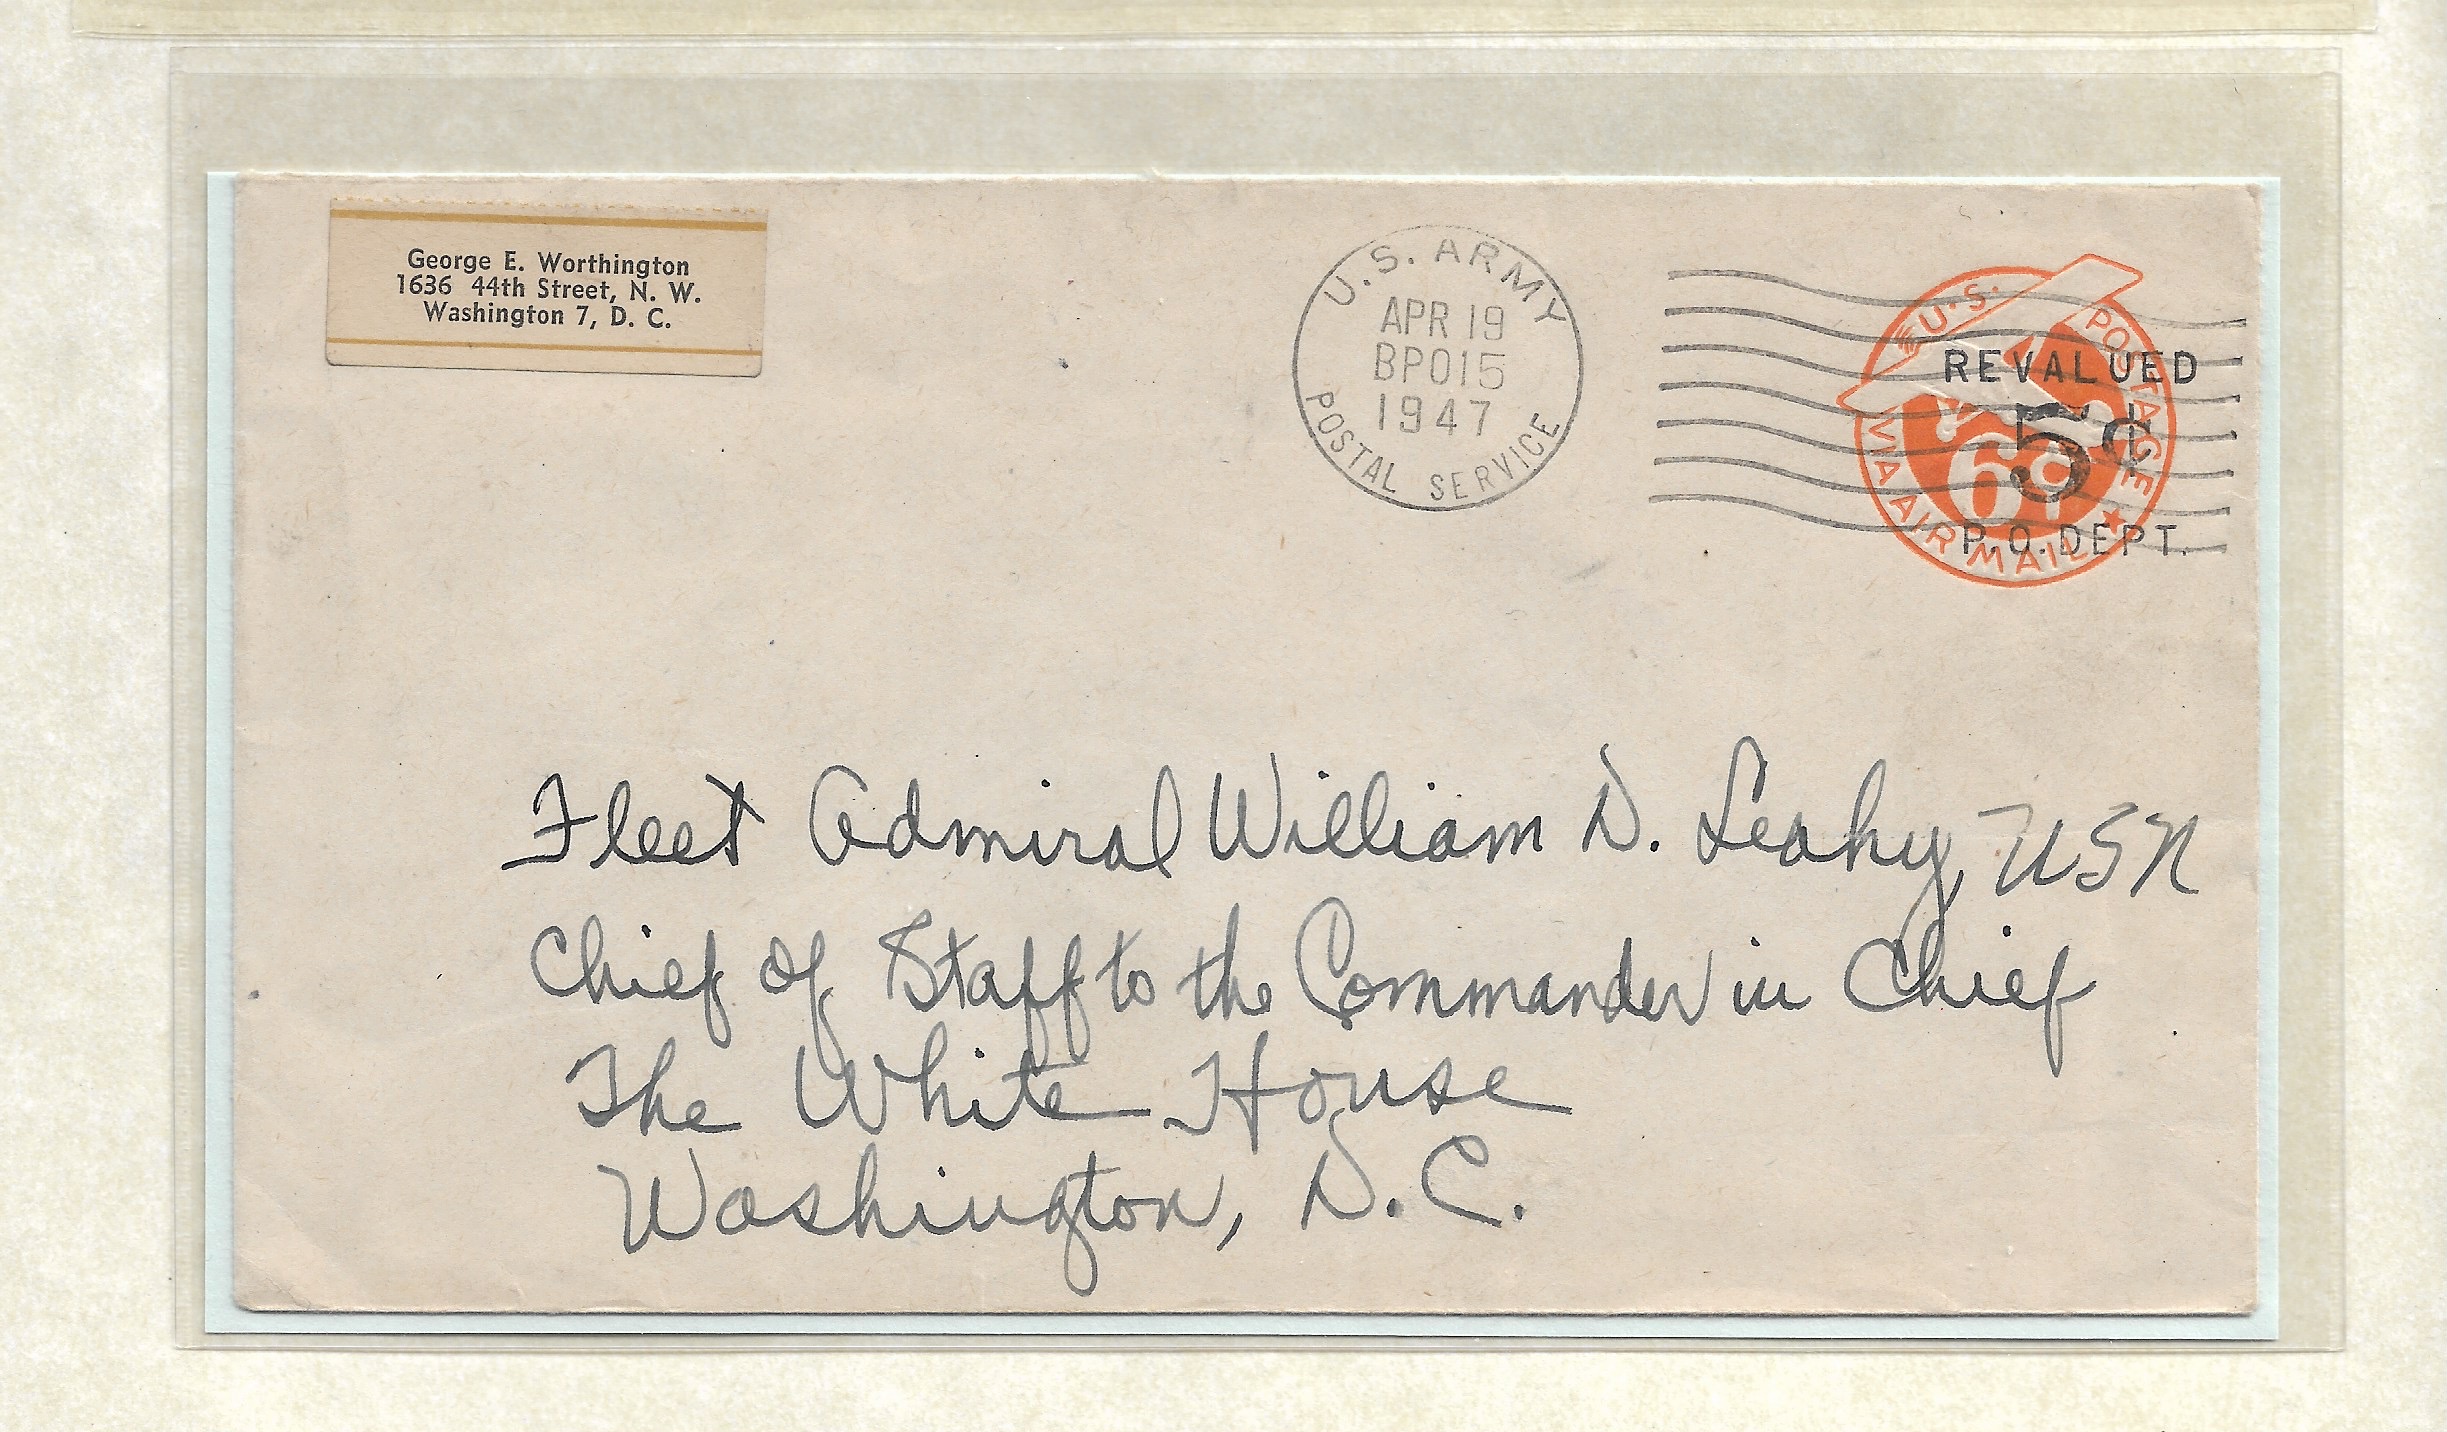 George E. Worthington
1636 44th Street, N. W.
Washington 7, D. C.
U.S. ARMY
APR 19
BPO15
1947
POSTAL SERVICE
U.S. POSTAGE
REVALUED
5¢
6¢
P.O.DEPT.
VIA AIR MAIL
Fleet Admiral William D. Leahy, USN
Chief of Staff to the Commander in Chief
The White House
Washington, D. C.